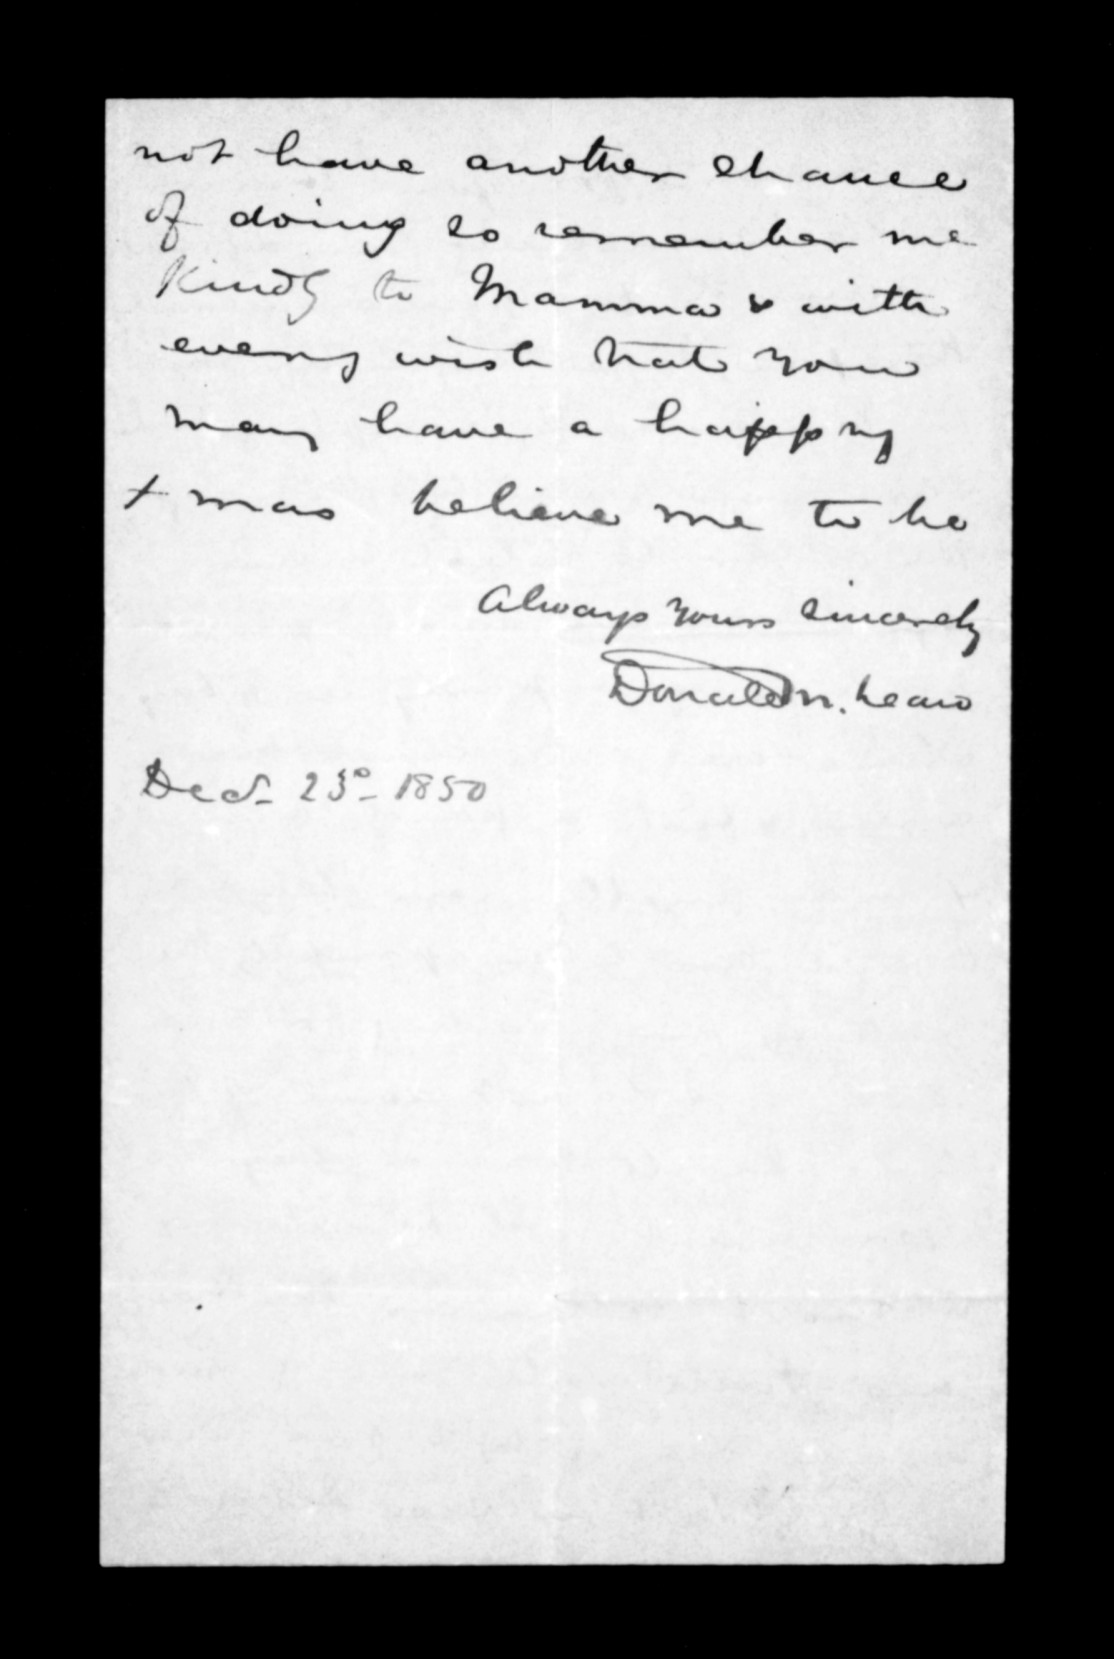 not have another chance
of doing so remember me
kindly to Mamma & with
every wish that you
may have a happy
Xmas believe me to be
Always yours sincerely
Donald McLean
Decr 23rd 1850